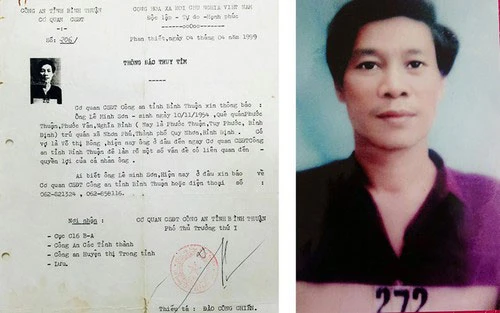 CÔNG AN TỈNH BÌNH THUẬN
CƠ QUAN CSĐT
-1-
Số: 206/
CỘNG HÒA XÃ HỘI CHỦ NGHĨA VIỆT NAM
Độc lập - Tự do - Hạnh phúc
------oo0oo------
Phan thiết, ngày 04 tháng 04 năm 1999
THÔNG BÁO TRUY TÌM
-----
Cơ quan CSĐT Công an tỉnh Bình Thuận xin thông báo :
Ông Lê Minh Sơn - sinh ngày 10/11/1954 ,Quê quán Phước
Thuận,Phước Vân,Nghĩa Bình ( Nay là Phước Thuận,Tuy Phước, Bình
Định) trú quán xã Nhơn Phú,Thành phố Quy Nhơn,Bình Định. Có
vợ là Võ thị Bông .Hiện nay ông ở đâu đến ngay Cơ quan CSĐTCông
an tỉnh Bình Thuận để làm rõ một số vấn đề có liên quan đến -
quyền lợi của cá nhân ông .
Ai biết ông Lê Minh Sơn,Hiện nay ở đâu xin báo về
Cơ quan CSĐT Công an tỉnh Bình Thuận hoặc điện thoại số :
062-821324 , 062-858116.
Nơi nhận :
- Cục C16 B-A
- Công An Các Tỉnh thành
- Công an Huyện thị Trong tỉnh
- Lưu.
CƠ QUAN CSĐT CÔNG AN TỈNH BÌNH THUẬN
Phó Thủ Trưởng thứ I
Thiếu tá : ĐÀO CÔNG CHIẾN.
272